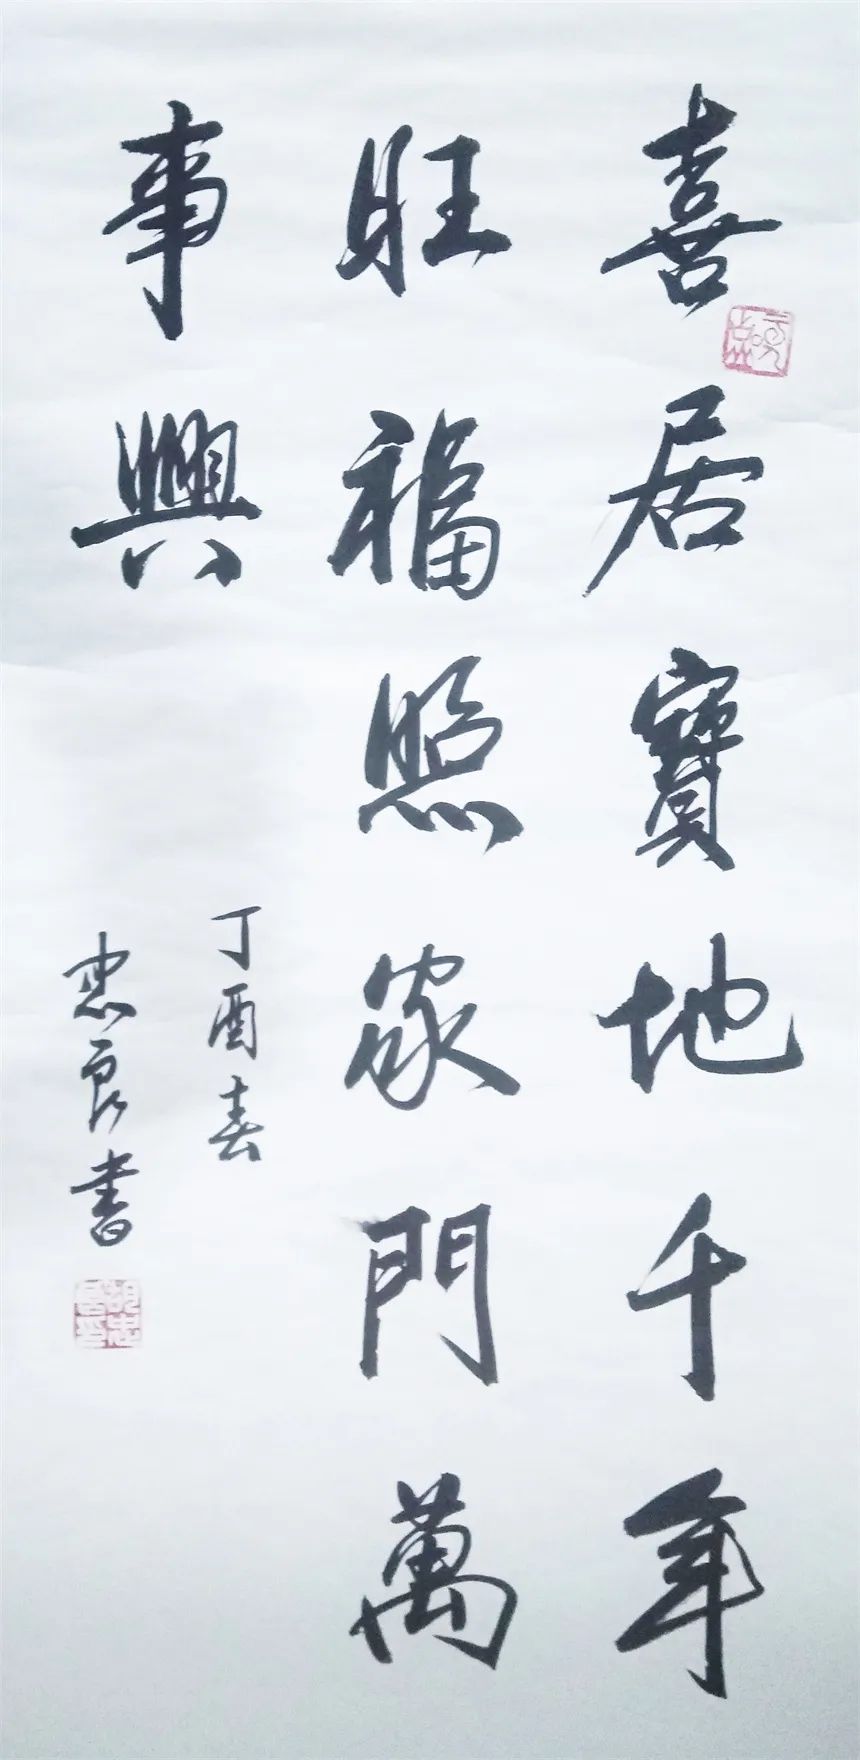 喜居寶地千年
旺福照家門萬
事興
丁酉春
忠良書